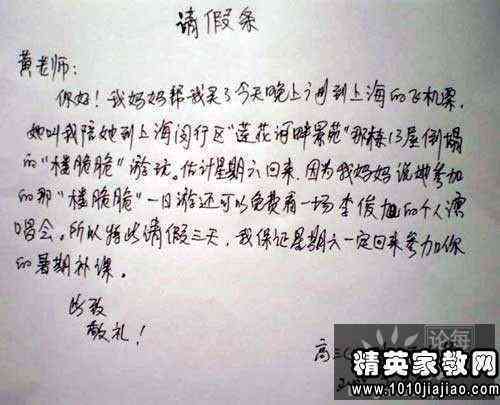 请假条
黄老师:
你好!我妈妈帮我买了今天晚上到上海的飞机票,
她叫我陪她到上海闵行区"莲花河畔景苑"那栋13层倒塌
的"楼脆脆"游玩。估计星期六回来,因为我妈妈说她参加
的那"楼脆脆"一日游还可以免费看一场李俊旭的个人演
唱会。所以特此请假三天,我保证星期六一定回来参加你
的暑期补课。
此致
敬礼!
高三
论每
精英家教网
www.1010jiajiao.com